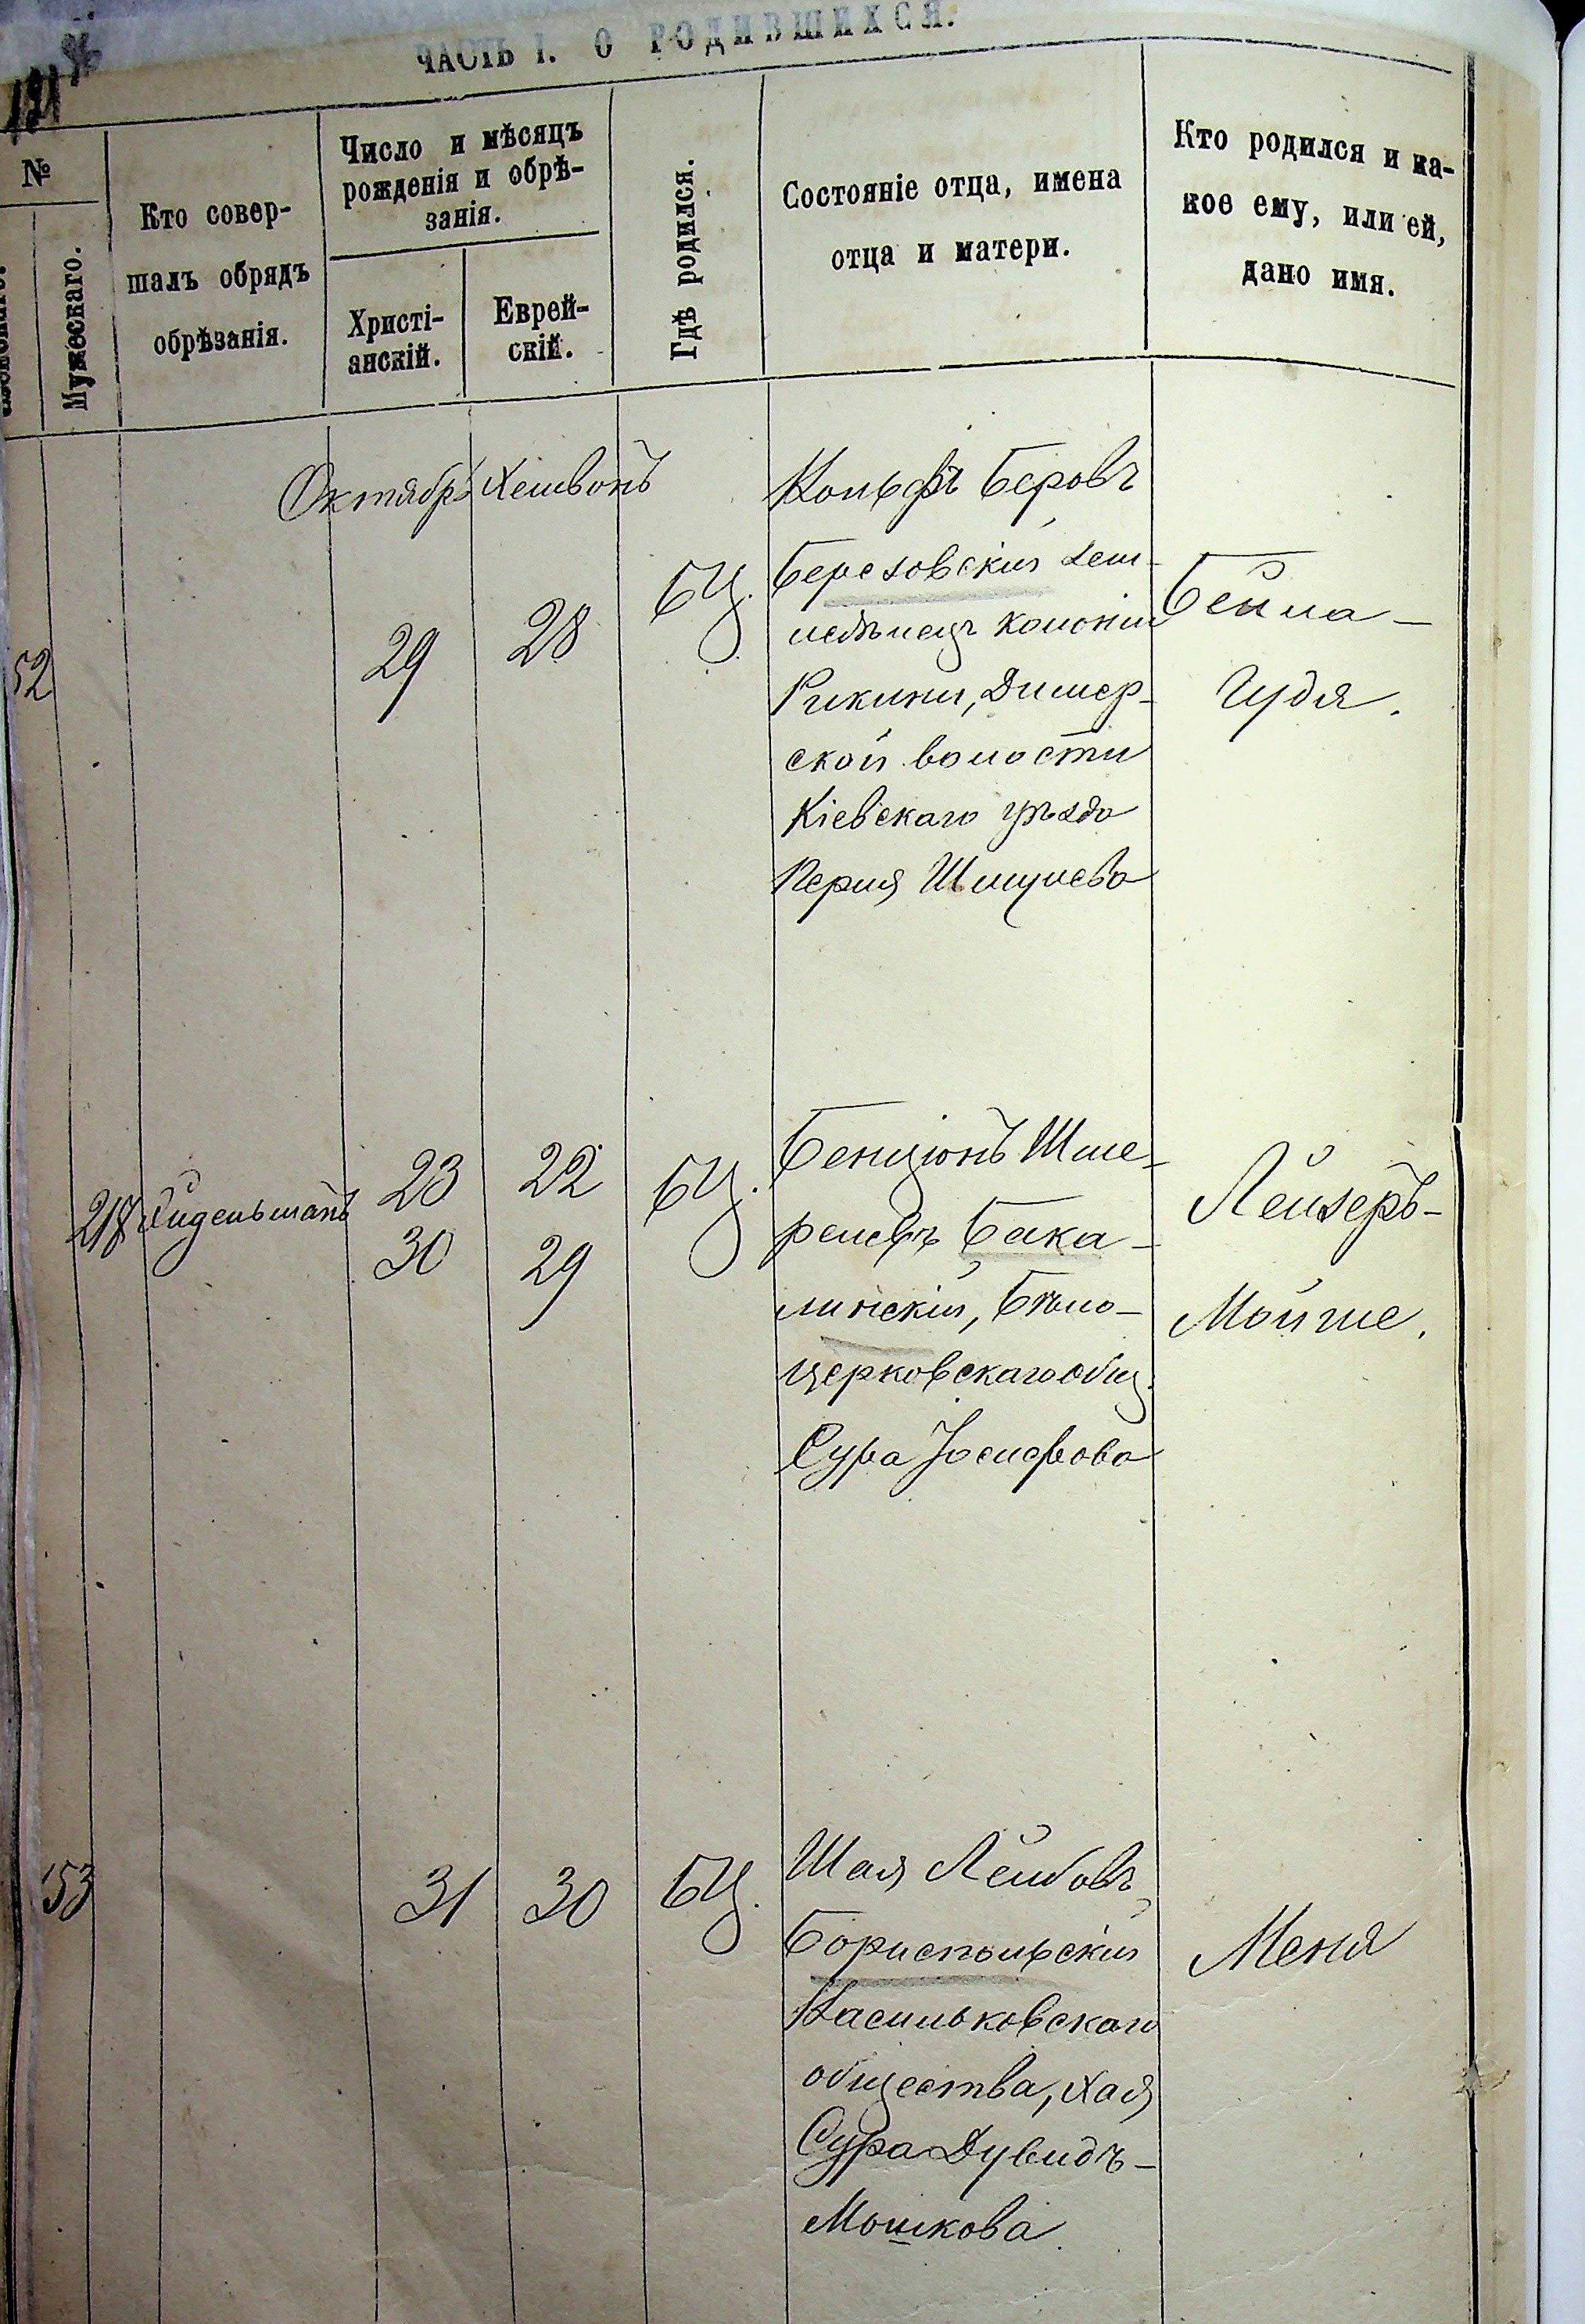 ЧАСТЬ I. О РОДИВШИХСЯ.
№
Мужескаго.
Кто совер-
шалъ обрядъ
обрѣзанія.
Число и мѣсяцъ
рожденія и обрѣ-
занія.
Христі-
анскій.
Еврей-
скій.
Гдѣ родился.
Состояніе отца, имена
отца и матери.
Кто родился и ка-
кое ему, или ей,
дано имя.
Октябрь Хешвонъ
52
29
28
БЦ.
Кольфъ Беровъ
Березовскій зем-
ледѣлецъ колоніи
Рикини, Димер-
ской волости
Кіевскаго уѣзда
Перля Шмулева
Бейла-
Гудя.
218
23
30
22
29
БЦ.
Бенціонъ Шме-
релевъ Бака-
линскій, Бѣло-
церковскаго общ.
Сура Іосифова
Лейзеръ-
Мойше.
153
31
30
БЦ.
Шая Лейбовъ
Бориспольскій
Васильковскаго
общества, Хая
Сура Дувидъ-
Мошкова
Меня